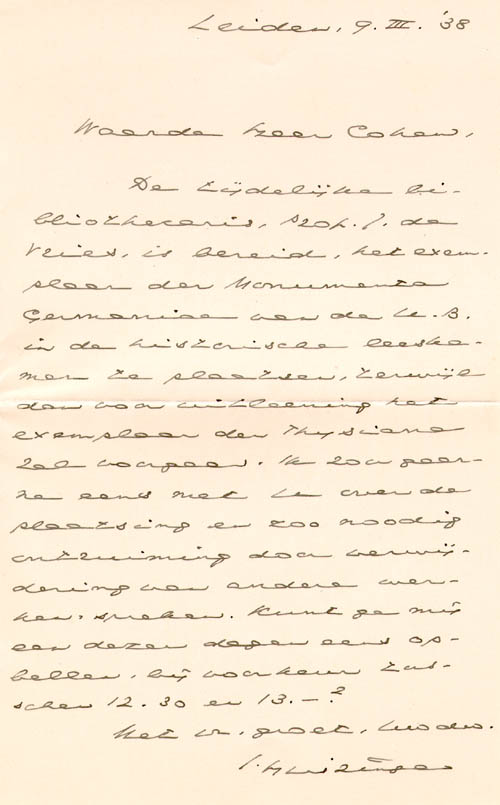 Leiden, 9. III. '38
Waarde Heer Cohen,
De tijdelijke bi-
bliothecaris, Prof. J. de
Vries, is bereid, het exem-
plaar der Monumenta
Germaniae van de U. B.
in de historische leeska-
mer te plaatsen, terwijl
dan voor uitleening het
exemplaar der Thysiana
zal voorgaan. Ik zou gaar-
ne eens met U over de
plaatsing en zoo noodig
ontruiming door verwij-
dering van andere wer-
ken spreken. Kunt ge mij
een dezer dagen eens op-
bellen, bij voorkeur tus-
schen 12.30 en 13.-?
Met vr. groet, Uw dw.
J. Huizinga